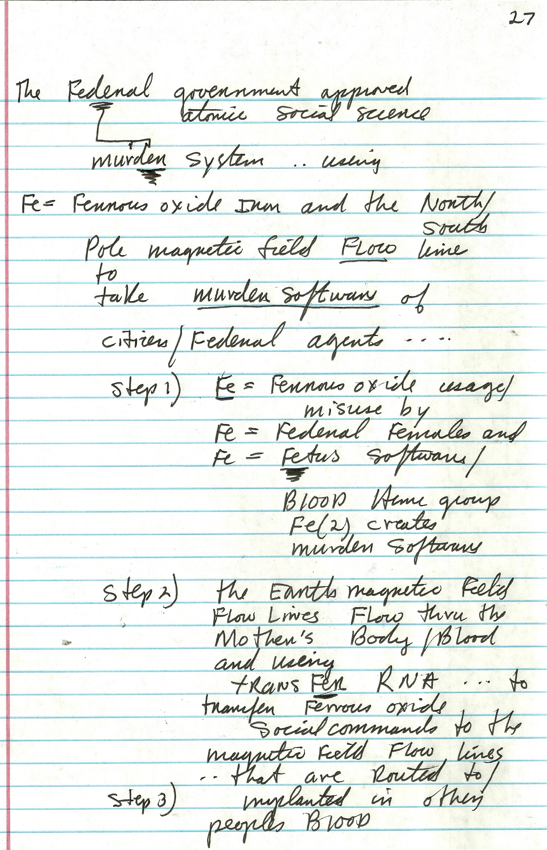 27
The Federal government approved
atomic social science
murder system .. using
Fe= Ferrous oxide Iron and the North/
South
Pole magnetic field FLOW line
to
take murder software of
citizen/Federal agents ....
Step 1) Fe = Ferrous oxide usage/
misuse by
Fe = Federal Females and
Fe = Fetus software/
BLOOD Heme group
Fe(2) creates
murder software
Step 2) the Earths magnetic Field
Flow Lines Flow thru the
Mother's Body/Blood
and using
tRANS FER RNA ... to
transfer Ferrous oxide
Social commands to the
magnetic Field Flow lines
.. that are Routed to/
Step 3) implanted in other
peoples Blood